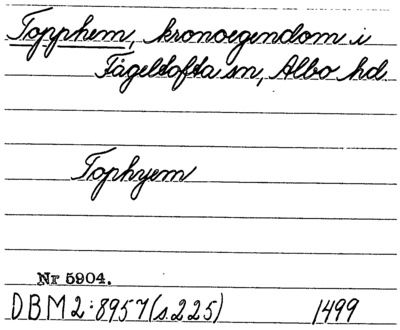 Topphem, kronoegendom i
Fågeltofta sn, Albo hd
Tophyem
Nr 5904.
DBM2:8957(s.225) 1499